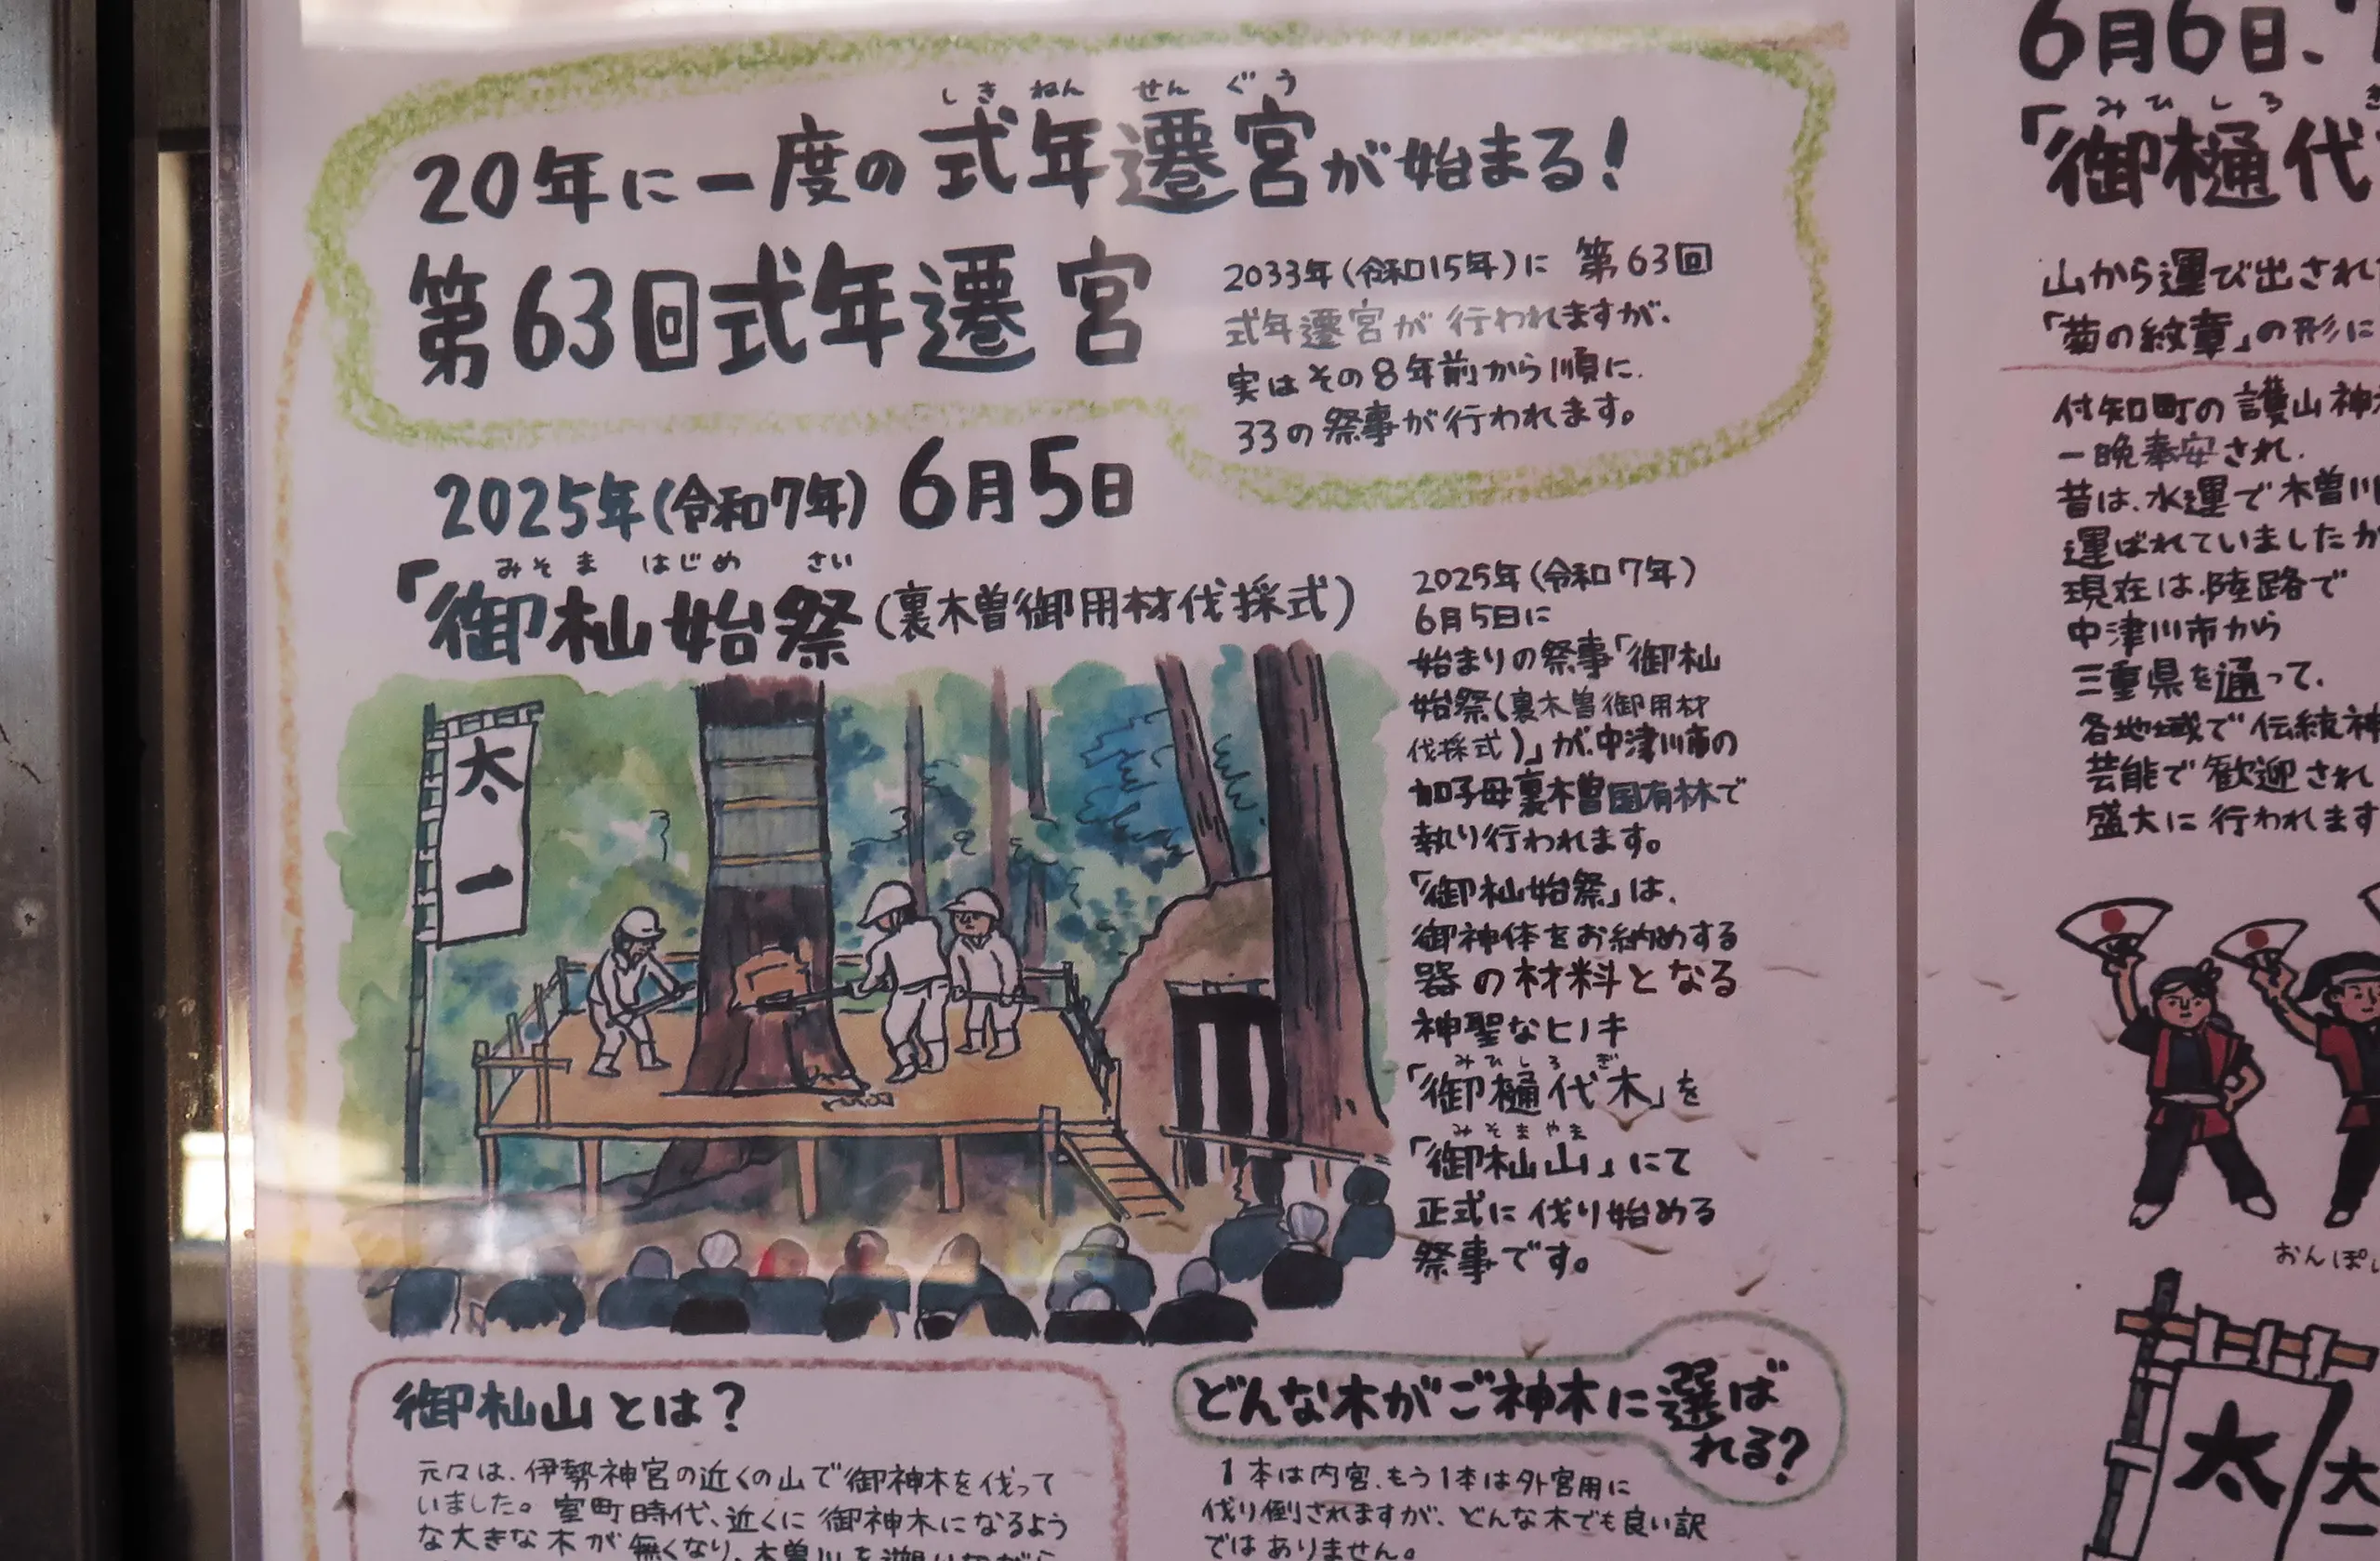 しきねんせんぐう
20年に一度の式年遷宮が始まる!
第63回式年遷宮
2033年(令和15年)に 第63回
式年遷宮が行われますが、
実はその8年前から順に、
33の祭事が行われます。
2025年(令和7年) 6月5日
みそまはじめさい
「御杣始祭(裏木曽御用材伐採式)
太一
2025年(令和7年)
6月5日に
始まりの祭事「御杣
始祭(裏木曽御用材
伐採式)」が、中津川市の
加子母裏木曽国有林で
執り行われます。
「御杣始祭」は、
御神体をお納めする
器の材料となる
神聖なヒノキ
みひしろぎ
「御樋代木」を
みそまやま
「御杣山」にて
正式に伐り始める
祭事です。
御杣山とは?
元々は、伊勢神宮の近くの山で御神木を伐って
いました。室町時代、近くに御神木になるよう
な大きな木が無くなり、木曽川を
どんな木がご神木に選ば
れる?
1本は内宮、もう1本は外宮用に
伐り倒されますが、どんな木でも良い訳
ではありません。
6月6日、
みひしろぎ
「御樋代
山から運び出され
「菊の紋章」の形に
付知町の護山神
一晩奉安され、
昔は、水運で木曽川
運ばれていましたが
現在は、陸路で
中津川市から
三重県を通って、
各地域で伝統神
芸能で歓迎され
盛大に行われます
おんぽい
太
太一